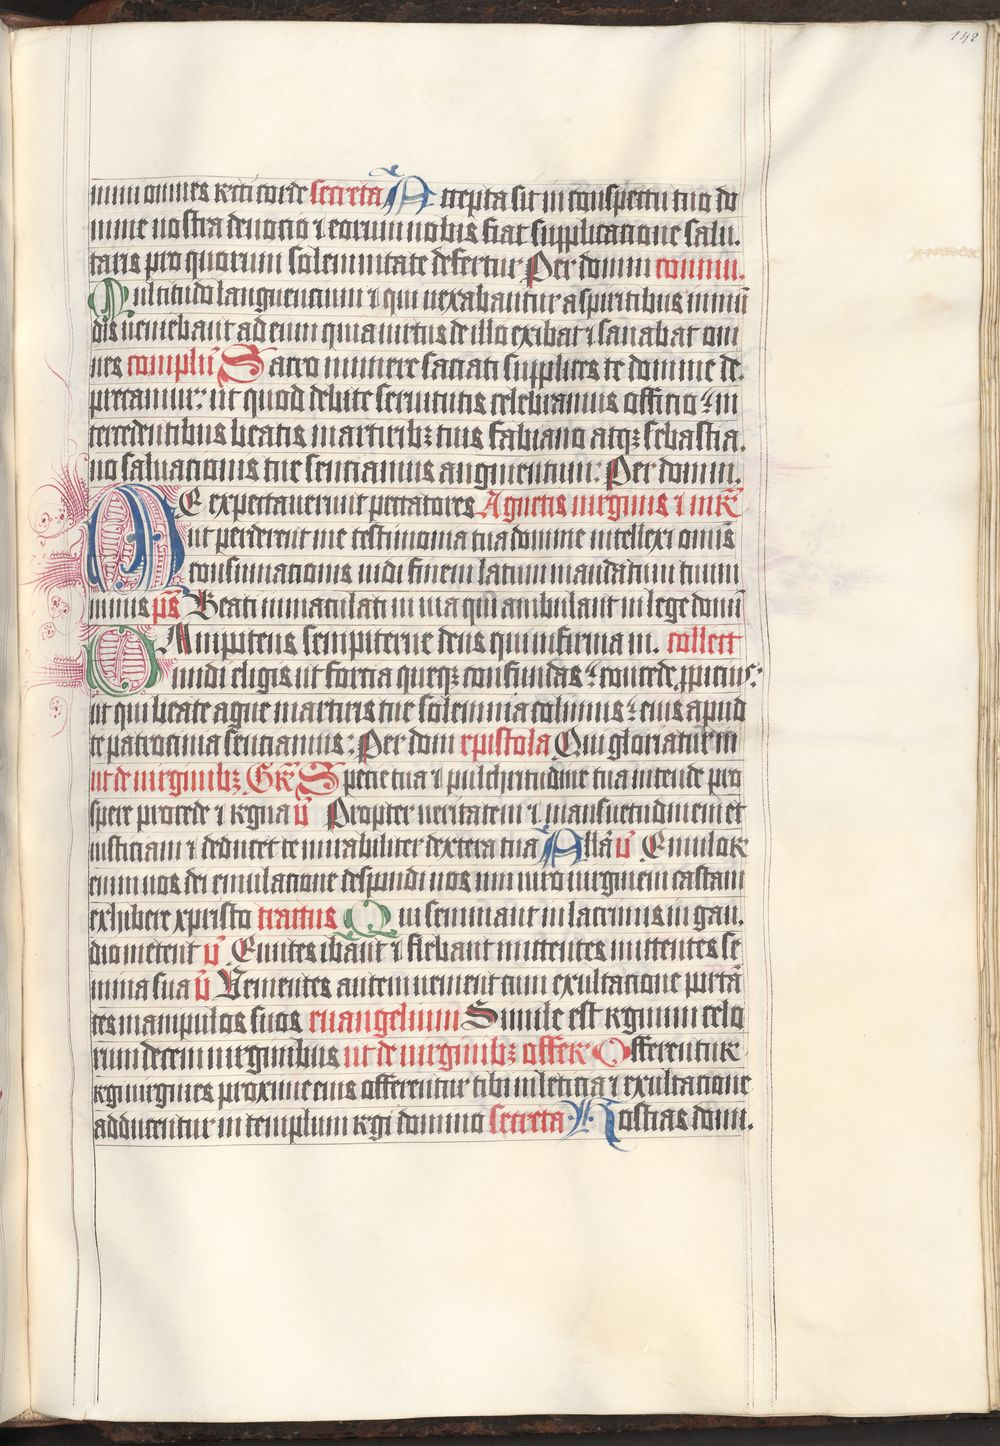 142
mini omnes recti corde secreta Accepta sit in conspectu tuo do
mine nostra deuocio ⁊ eorum nobis fiat supplicatione salu.
taris pro quorum solemnitate defertur Per domin commu.
Multitudo languentium ⁊ qui uexabantur a spiritibus inmū
dis ueniebant ad eum quia uirtus de illo exibat ⁊ sanabat om
nes complū Sacro munere saciati supplices te domine de.
precamur: ut quod debite seruitutis celebramus officio in
tercedentibus beatis martiribꝫ tuis fabiano atqꝫ sebastia.
no saluationis tue senciamus augmentum: Per domin.
ME expectauerunt peccatores Agnetis uirginis ⁊ mr̄
ut perderent me testimonia tua domine intellexi omīs
consummationis uidi finem latum mandatum tuum
nimis ps̄ Beati inmaculati in uia qui ambulant in lege domī
OAmnipotens sempiterne deus qui infirma m. collect
mundi eligis ut fortia queqꝫ confundas concede ꝓpicius:
ut qui beate agne martiris tue solemnia colimus eius apud
te patrocinia senciamus: Per dom epistola Qui gloriatur in
ut de uirginibꝫ Gr̄ Specie tua ⁊ pulchritudine tua intende pro
spere procede ⁊ regna ū Propter ueritatem ⁊ mansuetudinem et
iusticiam ⁊ deducet te mirabiliter dextera tua Allā ū Emulor
enim uos dei emulatione despondi uos uni uiro uirginem castam
exhibere xpristo tractus Qui seminant in lacrimis in gau.
dio metent ū Euntes ibant ⁊ flebant mittentes mittentes se
mina sua ū Uenientes autem uenient cum exultatione portā
tes manipulos suos euangelium Simile est regnum celo
rum decem uirginibus ut de uirginibꝫ offer Offerentur
regi uirgines proxime eius offerentur tibi in leticia ⁊ exultatione
adducentur in templum regi domino secreta Hostias domi.